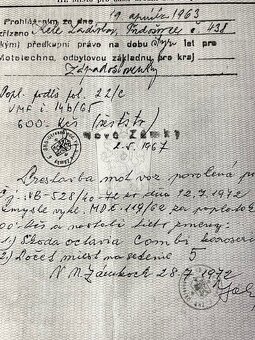 Prohláš
za dne 9. apríla 1963
zřízeno
Ladislav, č. 438
kým) předkupní právo na dobu let pro
Mototechnu, odbytovou základnu, pro kraj
Západoslovenský
Popl. podľa pol. 22/c
VMF č. 146/65
600.- Kčs (zistito)
Nové Zámky
2.5.1967
Prestavba mot. voz. povolená p
č.j. VB-528/40-72 zo dňa 12.7.1972
zmysle vyhl. MDS 119/62 za poplatok
a nastali tieto zmeny:
1.) Škoda octavia Combi karoseri
2.) Počet miest na sedenie 5
V N. Zámkoch 28.7.1972